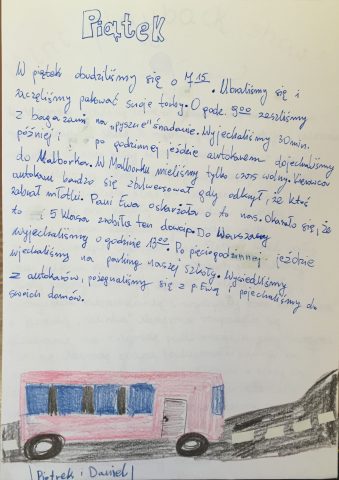 Piątek
W piątek obudziliśmy się o 7 15. Ubraliśmy się i
zaczęliśmy pakować swoje torby. O godz. 9 00 zeszliśmy
z bagażami na „pyszne” śniadanie. Wyjechaliśmy 30 min.
później i po godzinnej jeździe autokarem dojechaliśmy
do Malborka. W Malborku mieliśmy tylko czas wolny. Kierowca
autokaru bardzo się zbulwersował gdy odkrył, że ktoś
zabrał młotki. Pani Ewa oskarżała o to nas. Okazało się, że
to 5 klasa zrobiła ten dowcip. Do Warszawy
wyjechaliśmy o godzinie 13 00. Po pięciogodzinnej jeździe
wjechaliśmy na parking naszej szkoły. Wysiedliśmy
z autokarów, pożegnaliśmy się z p. Ewą i pojechaliśmy do
swoich domów.
Piotrek i Daniel